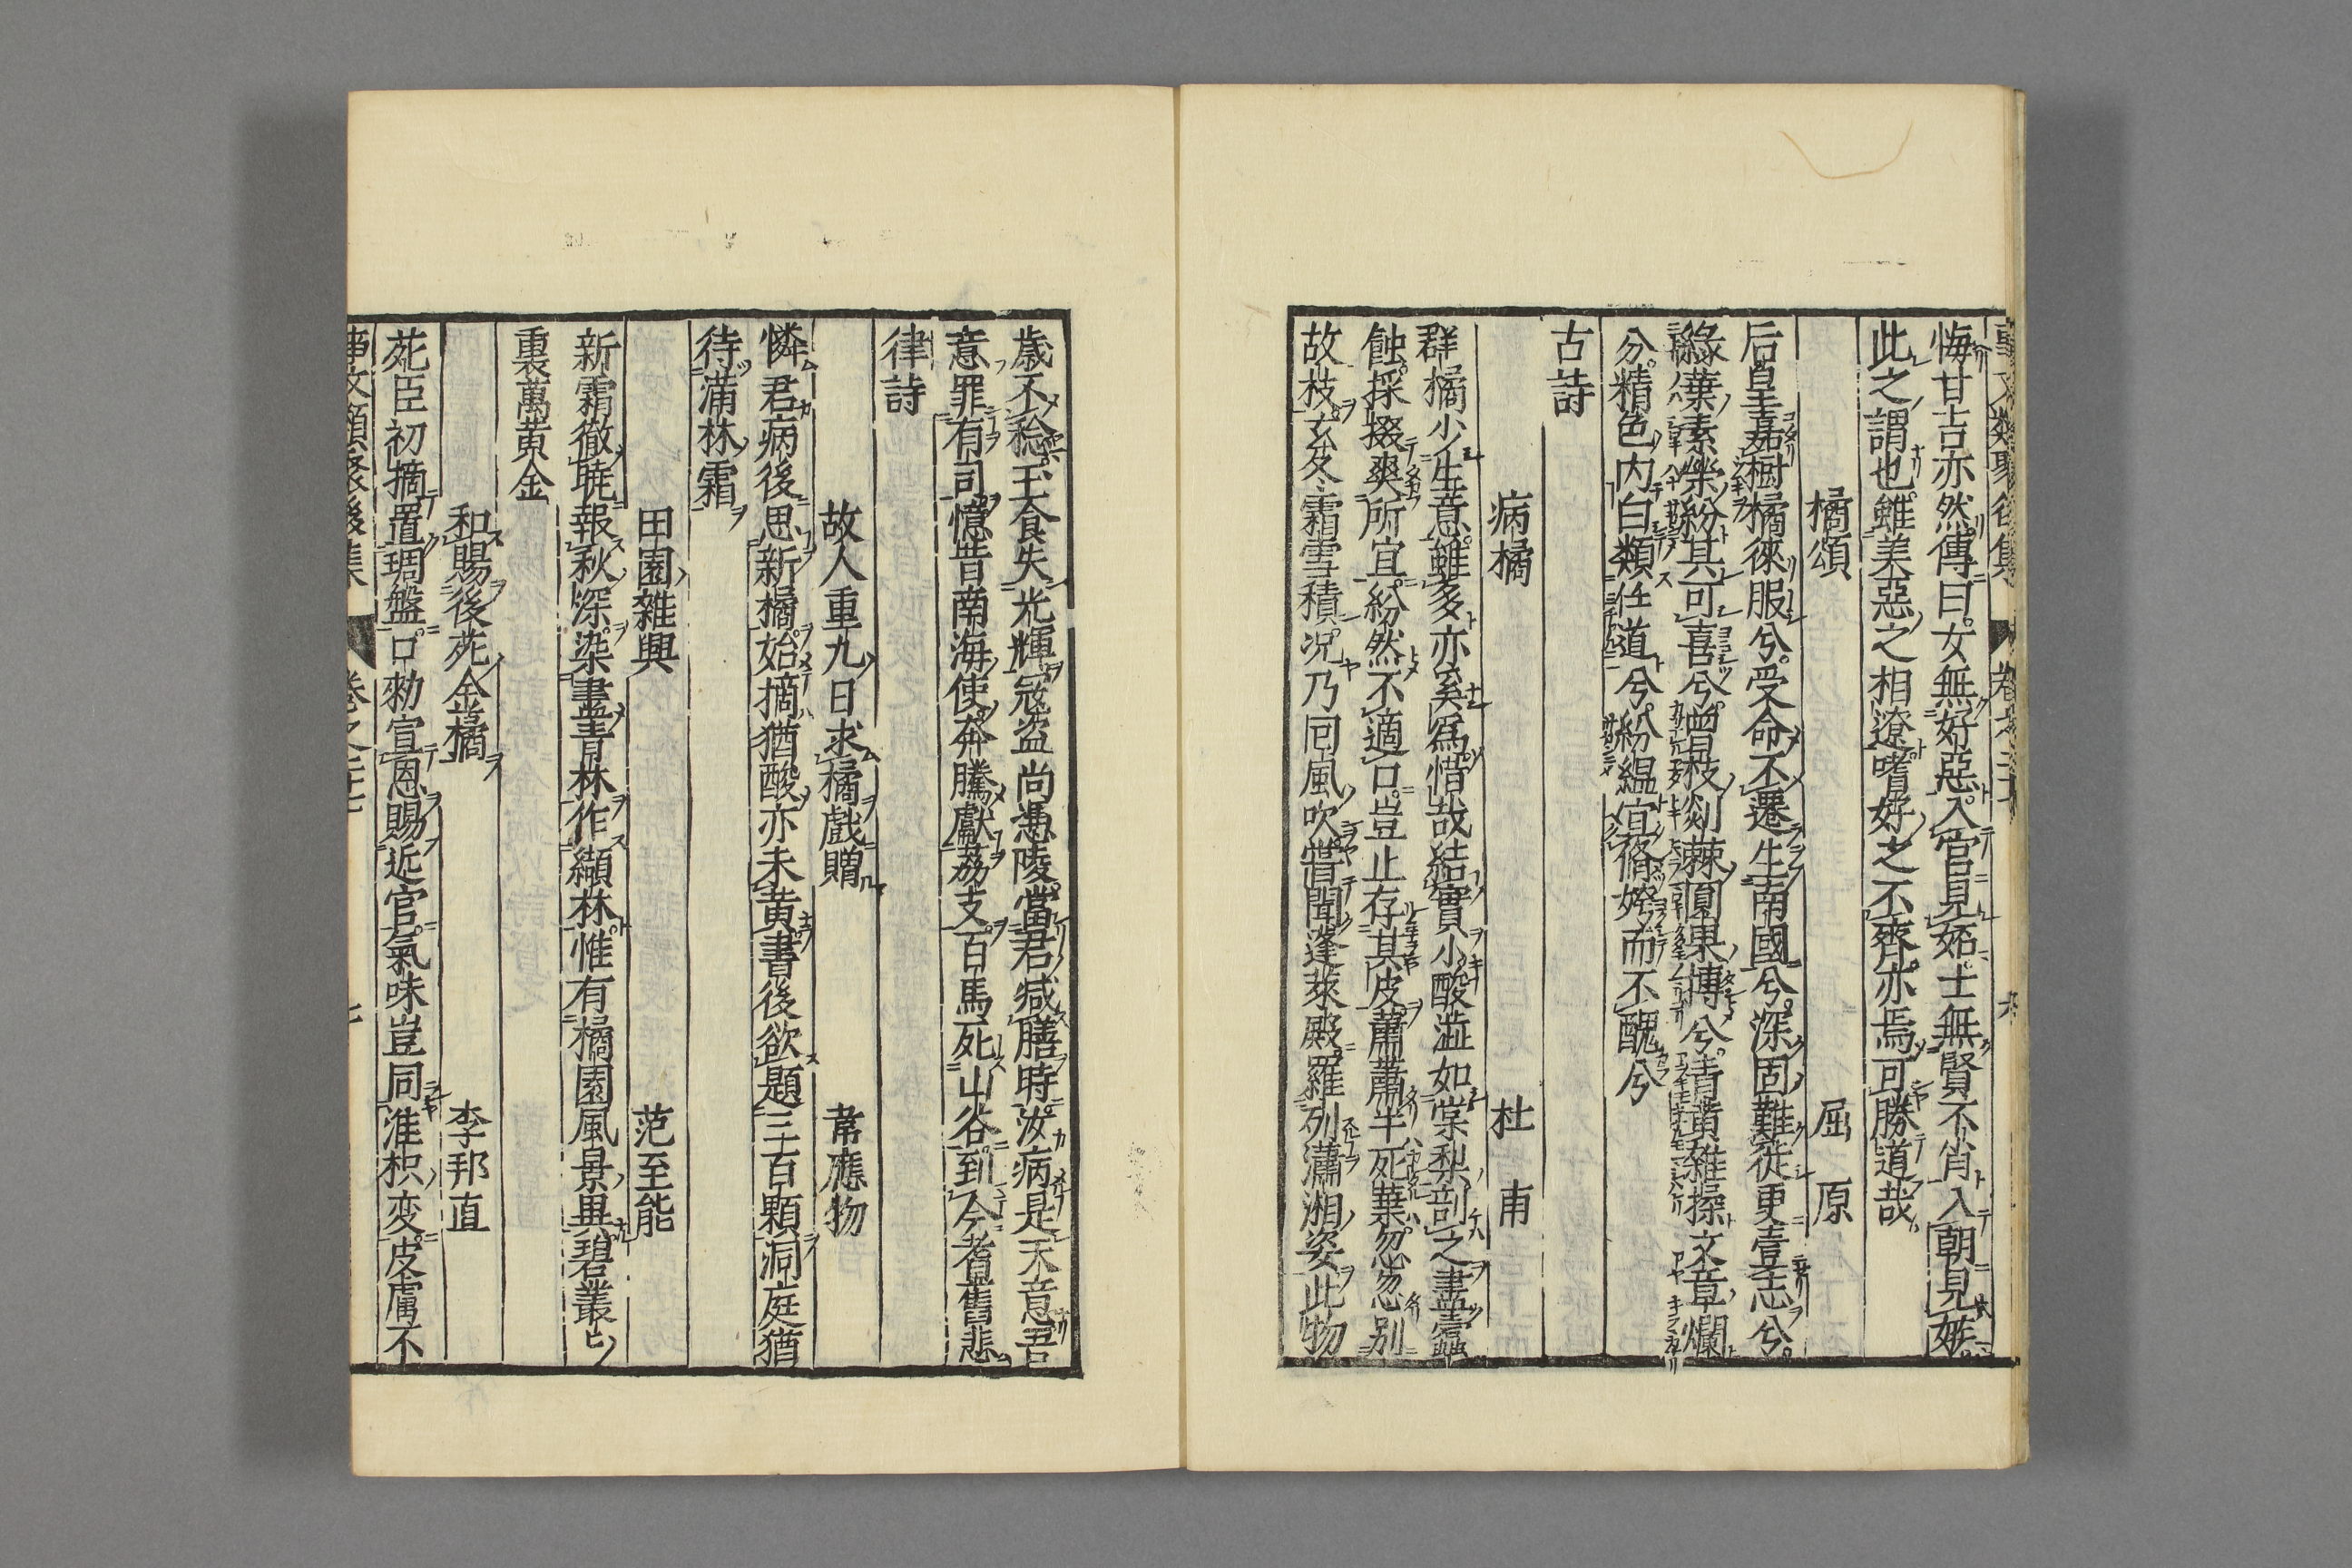 悔甘吉亦然傳曰女無好惡入官見妬士無賢不肖入朝見嫉
此之謂也雖美惡之相遼嗜好之不齊亦焉可勝道哉
橘頌　屈原
后皇嘉樹橘徠服兮受命不遷生南國兮深固難徙更壹志兮
綠葉素榮紛其可喜兮曽枝剡棘圓果摶兮青黄雜揉文章爛
兮精色内白類任道兮紛緼宜脩姱而不醜兮
古詩
病橘　杜甫
群橘少生意雖多亦奚爲惜哉結實小酸澁如棠梨剖之盡蠹
蝕採掇爽所宜紛然不適口豈止存其皮蕭蕭半死葉忽忽別
故枝玄冬霜雪積况乃囘風吹嘗聞蓬萊殿羅列瀟湘姿此物
歳不稔玉食失光輝冦盗尚憑陵當君减膳時汝病是天意吾
意罪有司憶昔南海使奔騰獻茘支百馬死山谷到今耆舊悲
律詩
故人重九日求橘戲贈　韋應物
憐君病後思新橘始摘猶酸亦未黄書後欲題三百顆洞庭猶
待滿林霜
田園雜興　范至能
新霜徹暁報秋深染盡青林作纈林惟有橘園風景異碧叢〻
裏萬黄金
和賜後苑金橘　李邦直
苑臣初摘置琱盤口勑宣恩賜近官氣味豈同淮枳変皮膚不